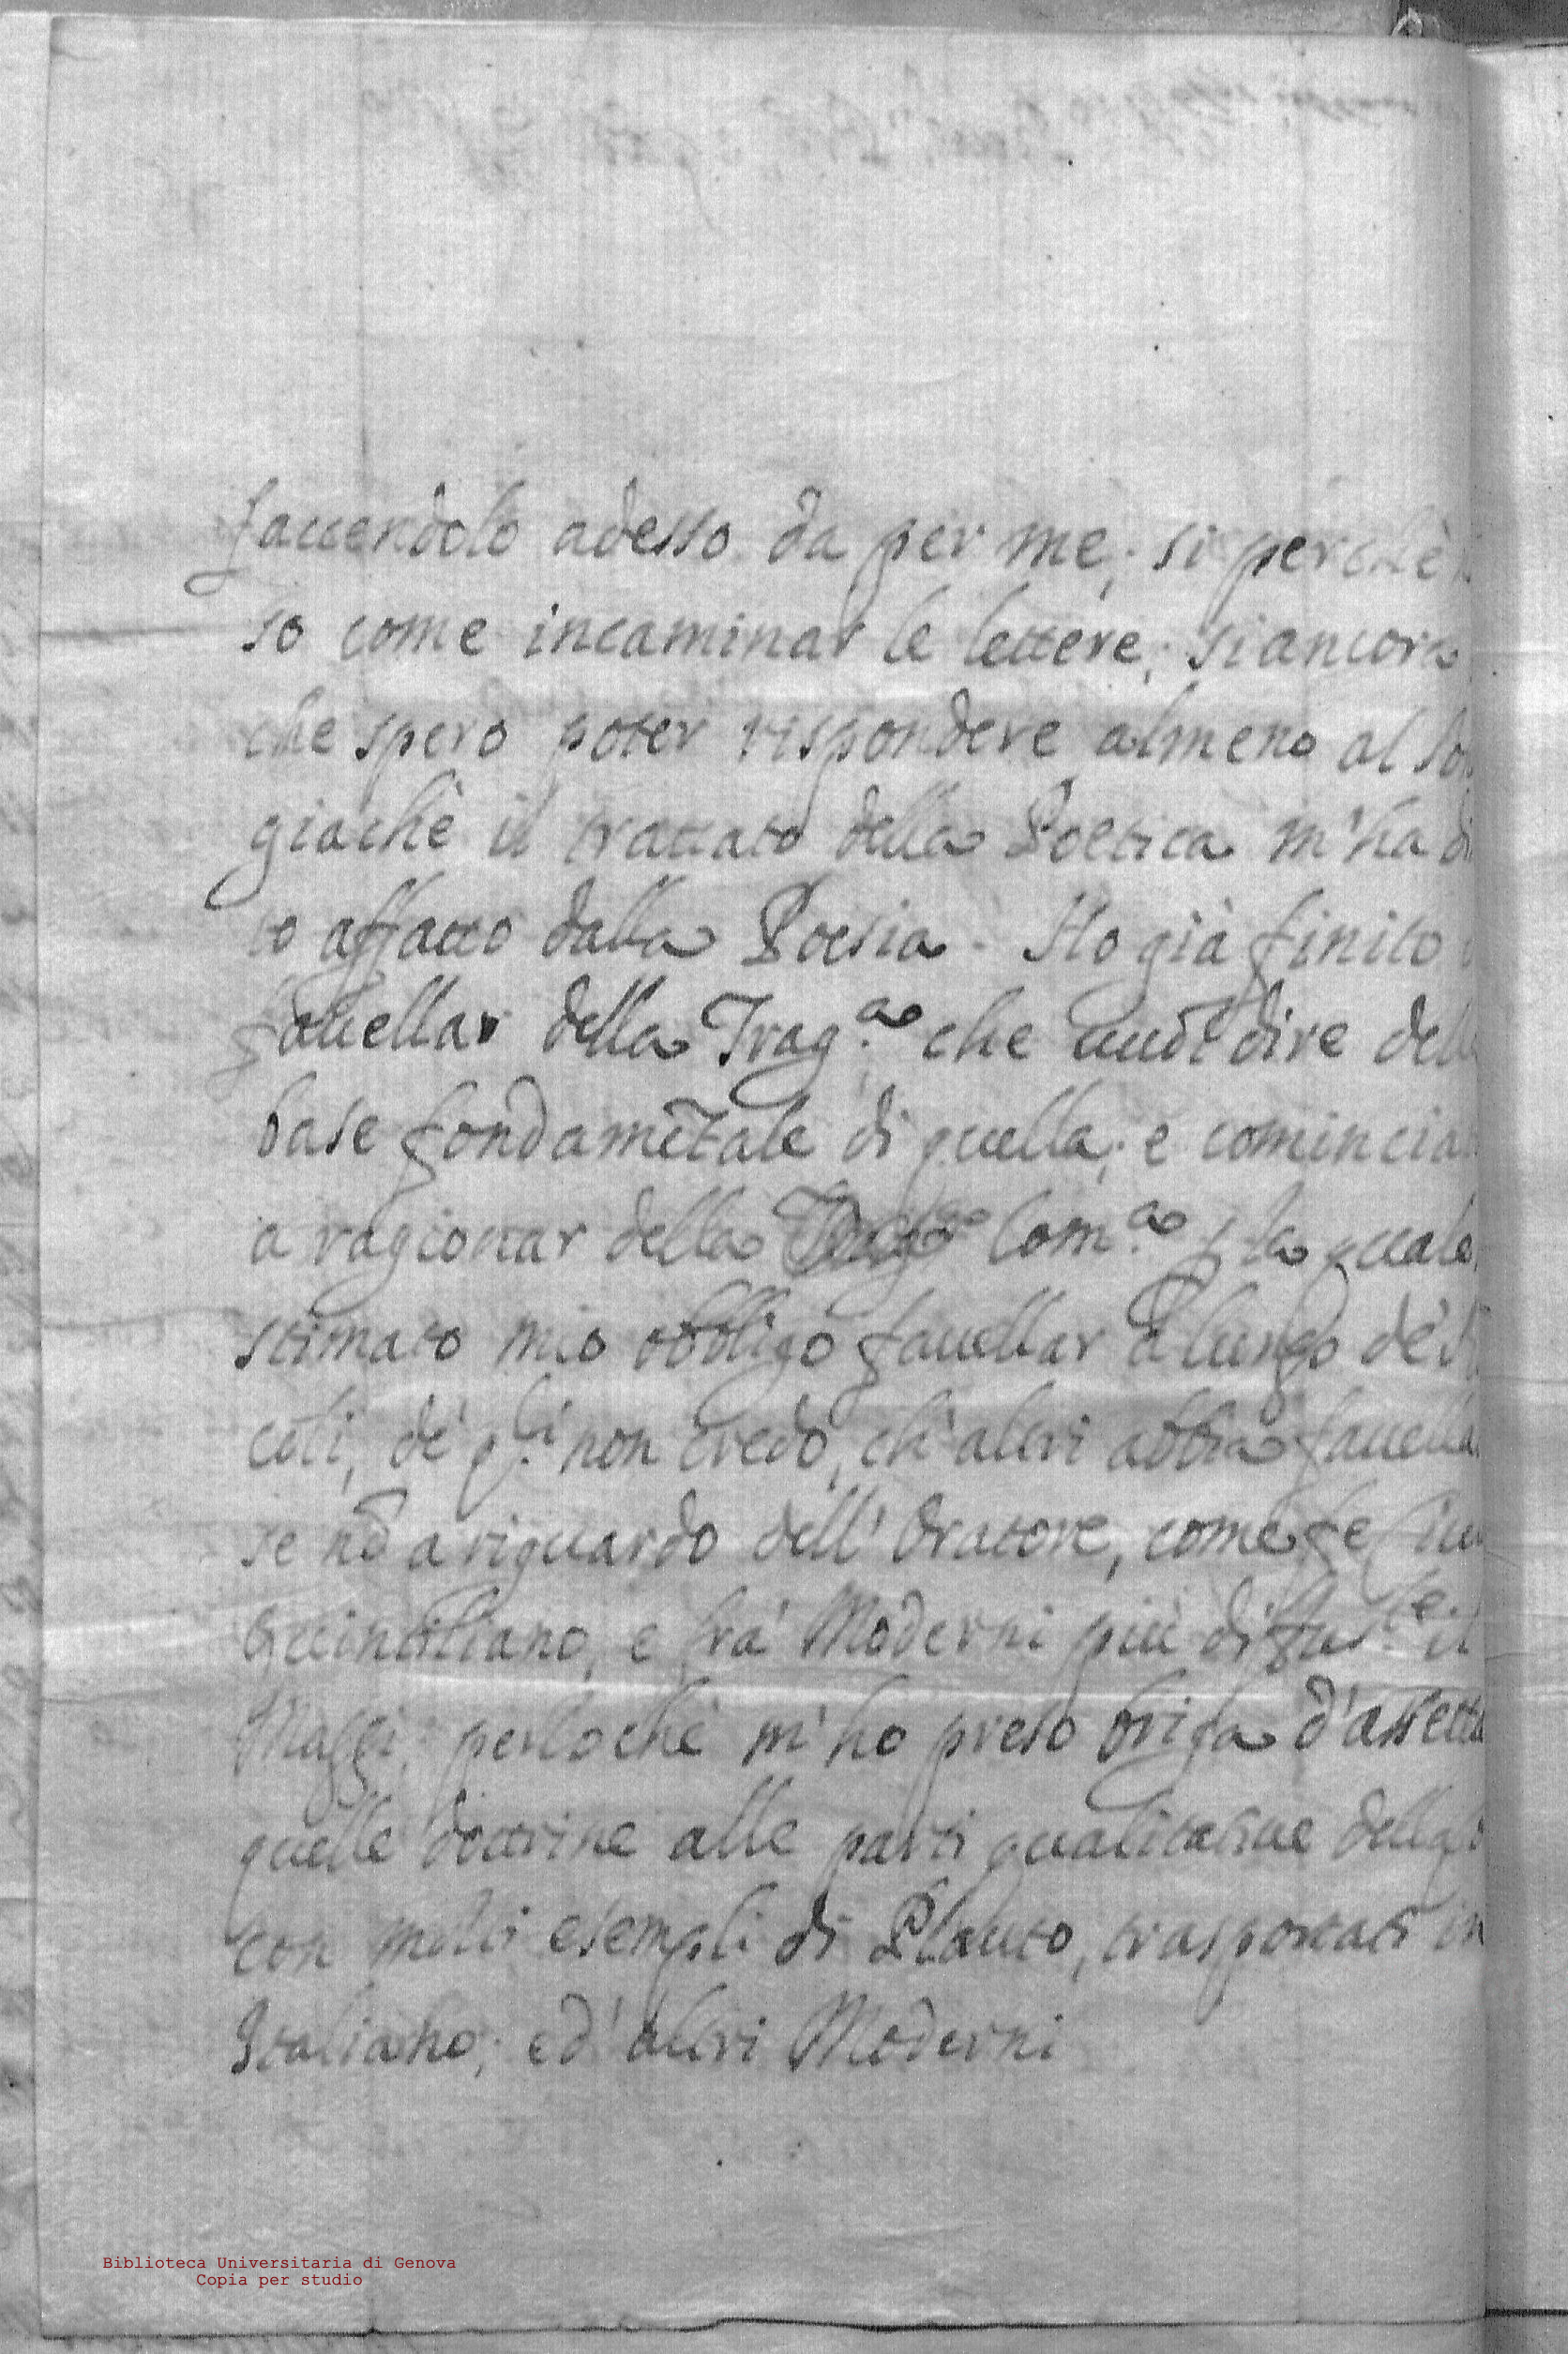 faccendolo adesso da per me; si perchè
so come incaminar le lettere; si ancora
che spero poter rispondere almeno al So
giachè il trattato della Poetica m'ha di
to affatto dalla Poesia. Ho già finito
fauellar della Trag.a che uuol dire della
base fondam̃tale di quella; e comincia
a ragionar della Com.a la quale
stimato mio obbligo fauellar a lungo de'
coli, de' q.li non credo, ch'altri abbia fauella
se nõ a riguardo dell'Oratore, come fe
Quintiliano, e fra' Moderni più diffus.te il
Maggi; perlochè m'ho preso briga d'assetta
quelle dottrine alle parti qualitatiue della
con molti esempli di Plauto, trasportati in
Italiano; ed'altri Moderni
Biblioteca Universitaria di Genova
Copia per studio